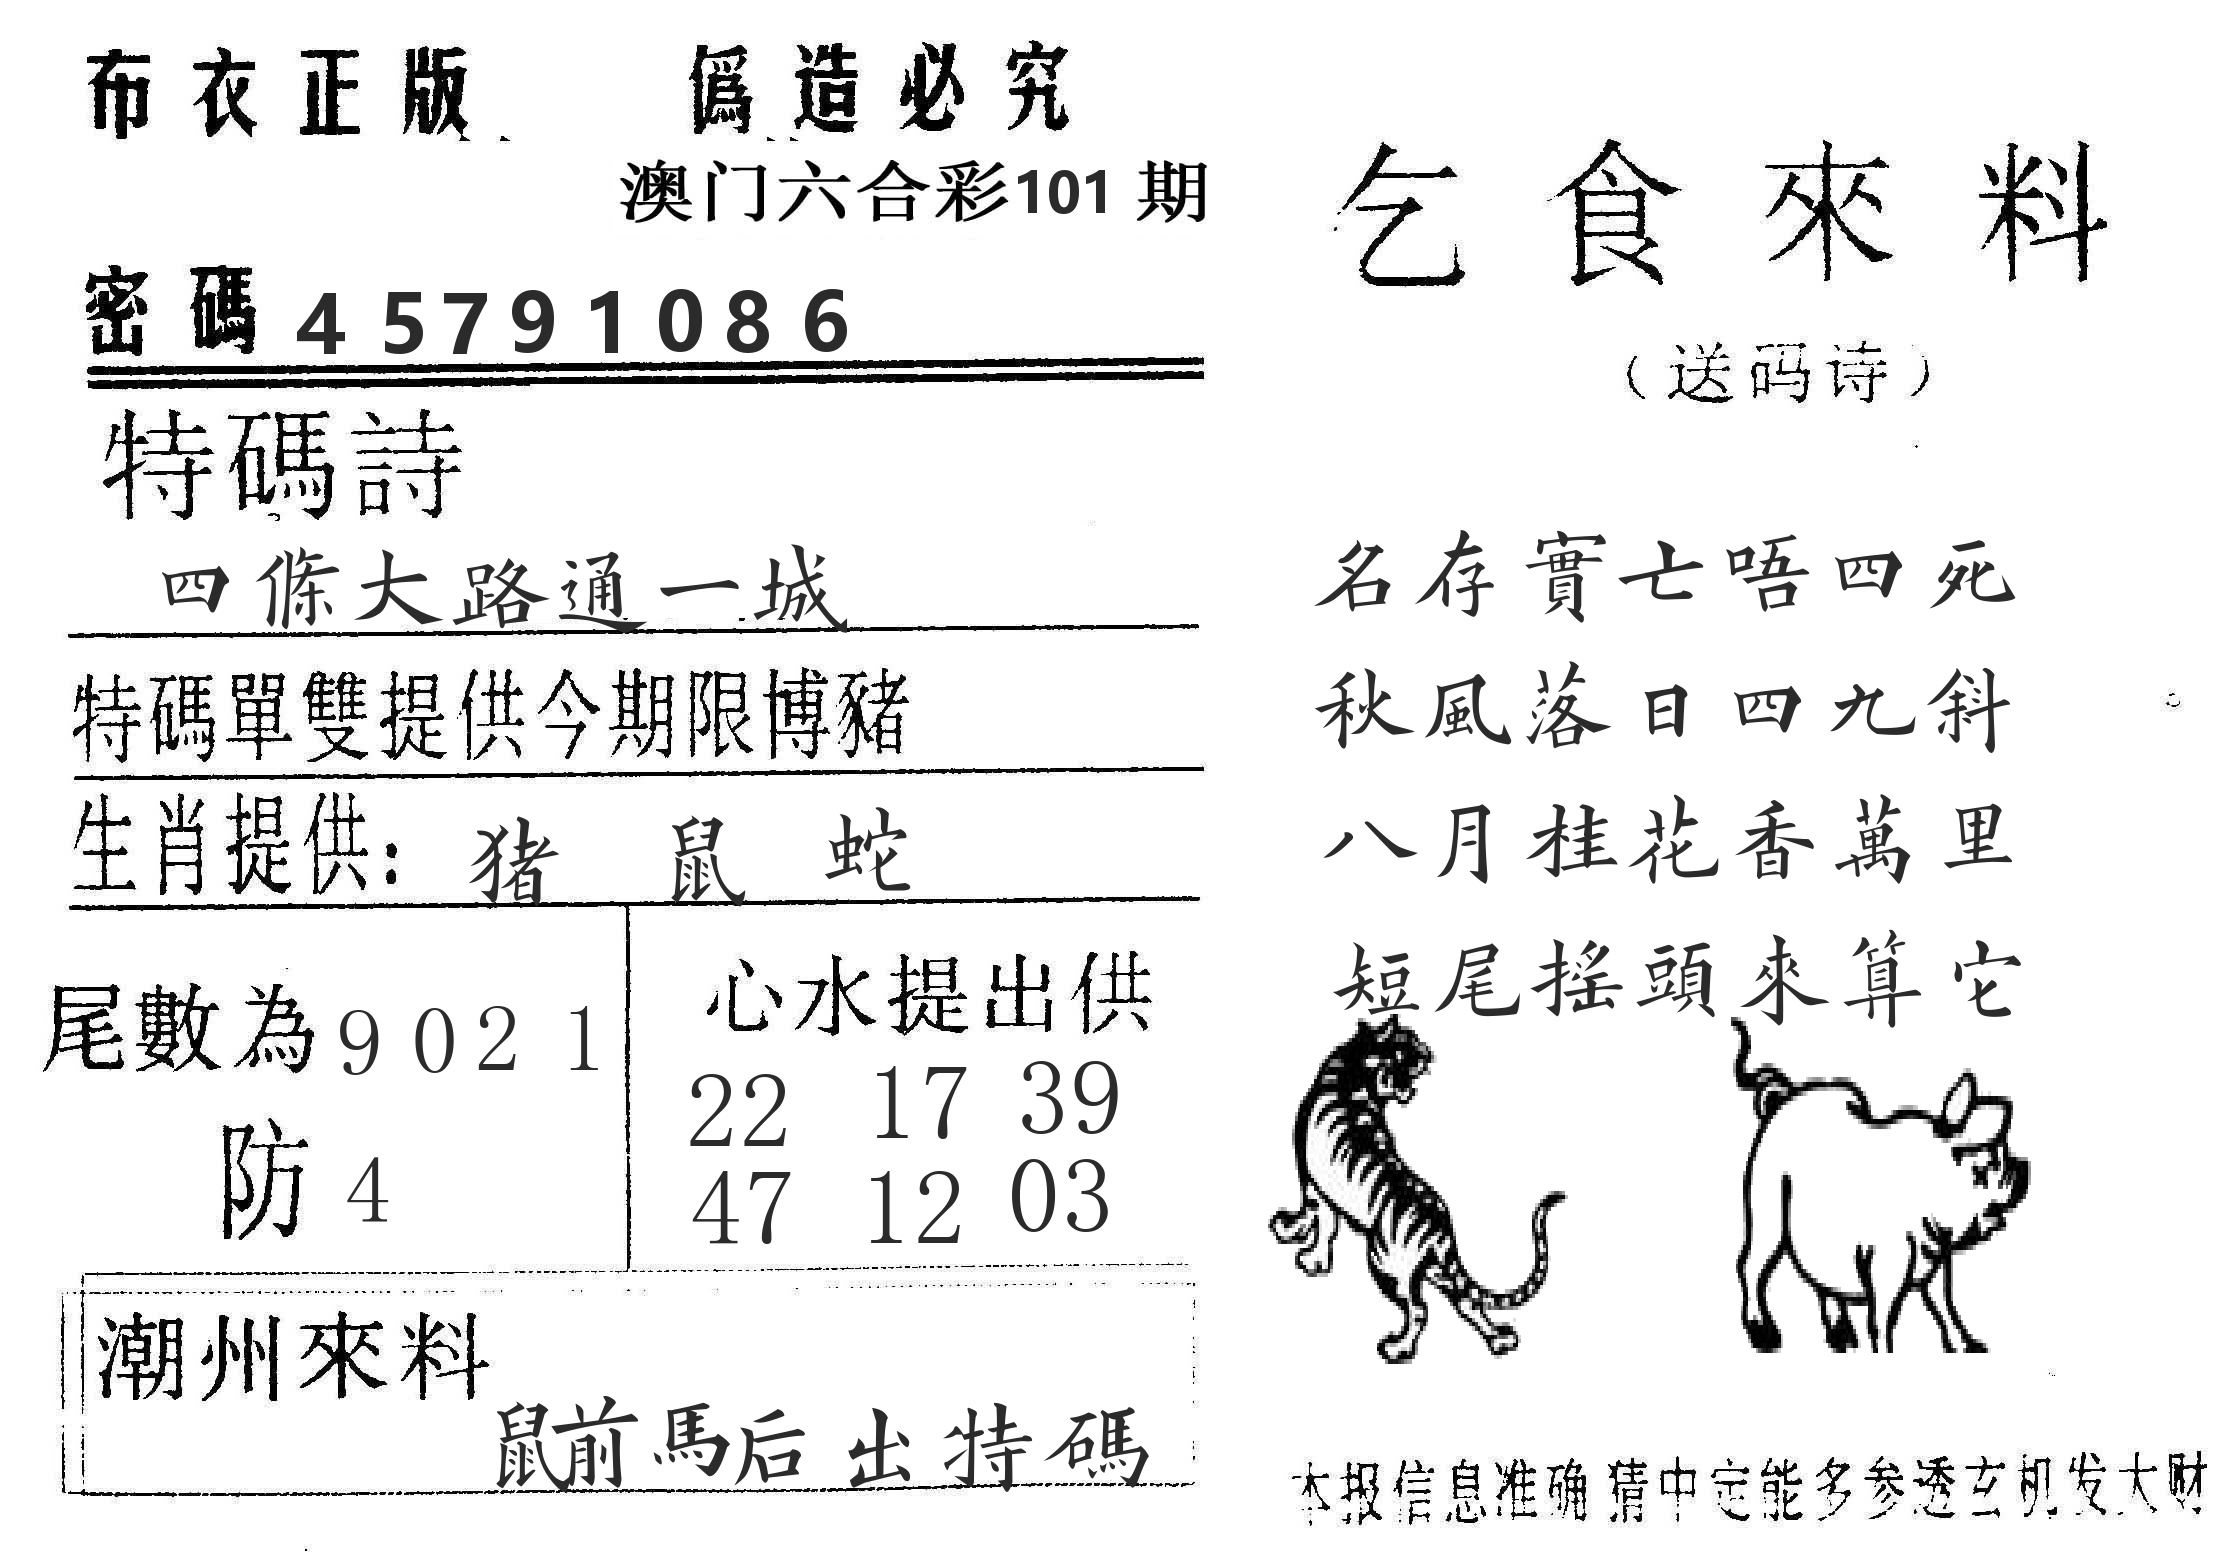 布衣正版 僞造必究
澳门六合彩101期
密碼 45791086
特碼詩
四條大路通一城
特碼單雙提供今期限博豬
生肖提供：猪 鼠 蛇
尾數為 9 0 2 1
防 4
心水提出供
22 17 39
47 12 03
潮州來料
鼠前馬后出特碼
乞食來料
（送码诗）
名存實亡唔四死
秋風落日四九斜
八月桂花香萬里
短尾搖頭來算它
本报信息准确猜中定能多参透玄机发大财